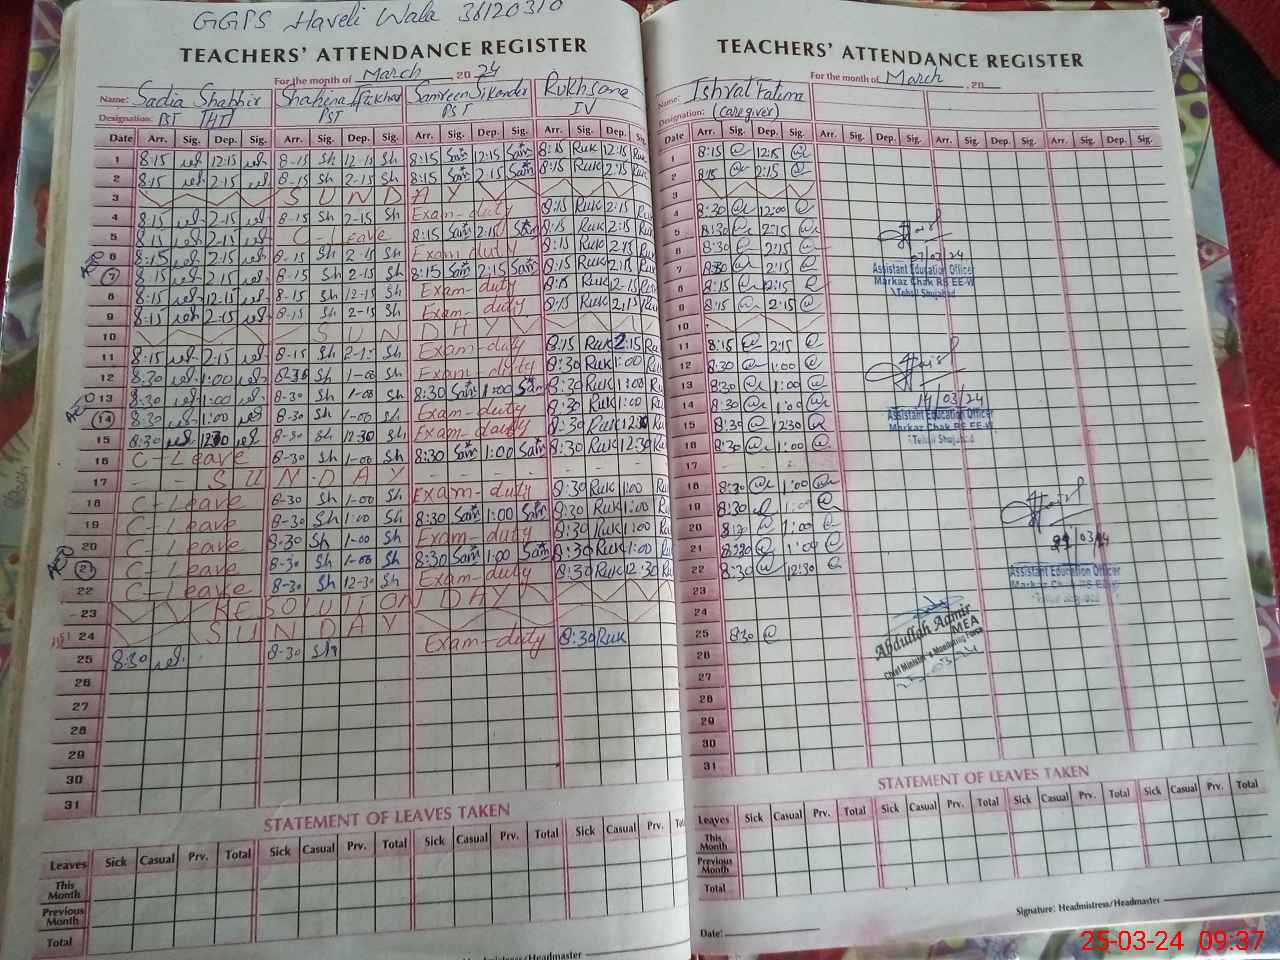 GGPS Haveli Wala 36120310
TEACHERS' ATTENDANCE REGISTER
For the month of March 2024
Name: Sadia Shabbir Shahena Iftkhar Samreen Sikander Rukhsana
Designation: PST IHT PST PST IV
Date Arr. Sig. Dep. Sig. Arr. Sig. Dep. Sig. Arr. Sig. Dep. Sig. Arr. Sig. Dep. Sig.
1 8:15 12:15 8-15 Sh 12-15 Sh 8:15 Sam 12:15 Sam 8:15 Ruk 12:15 Ruk
2 8:15 2:15 8-15 Sh 2-15 Sh 8:15 Sam 2:15 Sam 8:15 Ruk 2:15 Ruk
3 SUNDAY
4 8:15 2:15 8-15 Sh 2-15 Sh Exam-duty 8:15 Ruk 2:15 Ruk
5 8:15 2:15 C-Leave 8:15 Sam 2:15 Sam 8:15 Ruk 2:15 Ruk
6 8:15 2:15 8-15 Sh 2-15 Sh Exam duty 8:15 Ruk 2:15 Ruk
AEO 7 8:15 2:15 8-15 Sh 2-15 Sh 8:15 Sam 2:15 Sam 8:15 Ruk 2:15 Ruk
8 8:15 12:15 8-15 Sh 12-15 Sh Exam-duty 8:15 Ruk 12:15 Ruk
9 8:15 2:15 8-15 Sh 2-15 Sh Exam-duty 8:15 Ruk 2:15 Ruk
10 SUNDAY
11 8:15 2:15 8-15 Sh Sh Exam-duty 8:15 Ruk 2:15 Ruk
12 8:30 1:00 8-30 Sh 1-00 Sh Exam-duty 8:30 Ruk 1:00 Ruk
13 8:30 1:00 8-30 Sh 1-00 Sh 8:30 Sam 1:00 Sam 8:30 Ruk 1:00 Ruk
AEO 14 8:30 1:00 8-30 Sh 1-00 Sh Exam-duty 8:30 Ruk 1:00 Ruk
15 8:30 12:30 8-30 Sh 12-30 Sh Exam-duty 8:30 Ruk 12:30 Ruk
16 C-Leave 8-30 Sh 1-00 Sh 8:30 Sam 1:00 Sam 8:30 Ruk 12:30 Ruk
17 SUNDAY
18 C-Leave 8-30 Sh 1-00 Sh Exam-duty 8:30 Ruk 1:00 Ruk
19 C-Leave 8-30 Sh 1:00 Sh 8:30 Sam 1:00 Sam 8:30 Ruk 1:00 Ruk
20 C-Leave 8-30 Sh 1-00 Sh Exam-duty 8:30 Ruk 1:00 Ruk
AEO 21 C-Leave 8-30 Sh 1-00 Sh 8:30 Sam 1:00 Sam 8:30 Ruk 1:00 Ruk
22 C-Leave 8-30 Sh 12-30 Sh Exam-duty 8:30 Ruk 12:30 Ruk
23 RESOLUTION DAY
24 SUNDAY
25 8:30 8-30 Sh Exam-duty 8:30 Ruk
26
27
28
29
30
31
STATEMENT OF LEAVES TAKEN
Leaves Sick Casual Prv. Total Sick Casual Prv. Total Sick Casual Prv. Total Sick Casual Prv.
This Month
Previous Month
Total
Headmistress/Headmaster
TEACHERS' ATTENDANCE REGISTER
For the month of March, 20
Name: Ishrat Fatima
Designation: (caregiver)
Date Arr. Sig. Dep. Sig. Arr. Sig. Dep. Sig. Arr. Sig. Dep. Sig. Arr. Sig. Dep. Sig.
1 8:15 12:15
2 8:15 2:15
3
4 8:30 12:00
5 8:30 2:15
6 8:30 2:15
7 8:30 2:15
8 8:15 12:15
9 8:15 2:15
10
11 8:15 2:15
12 8:30 1:00
13 8:30 1:00
14 8:30 1:00
15 8:30 12:30
16 8:30 1:00
17
18 8:30 1:00
19 8:30 1:00
20 8:30 1:00
21 8:30 1:00
22 8:30 12:30
23
24
25 8:30
26
27
28
29
30
31
07/03/24
Assistant Education Officer
Markaz Chak RS EE-W
Tehsil Shujabad
14/03/24
Assistant Education Officer
Markaz Chak RS EE-W
Tehsil Shujabad
21/03/24
Assistant Education Officer
Markaz Chak RS EE-W
Tehsil Shujabad
Abdullah Aamir
MEA
Chief Minister's Monitoring Force
STATEMENT OF LEAVES TAKEN
Leaves Sick Casual Prv. Total Sick Casual Prv. Total Sick Casual Prv. Total Sick Casual Prv. Total
This Month
Previous Month
Total
Signature: Headmistress/Headmaster
Date:
25-03-24 09:37